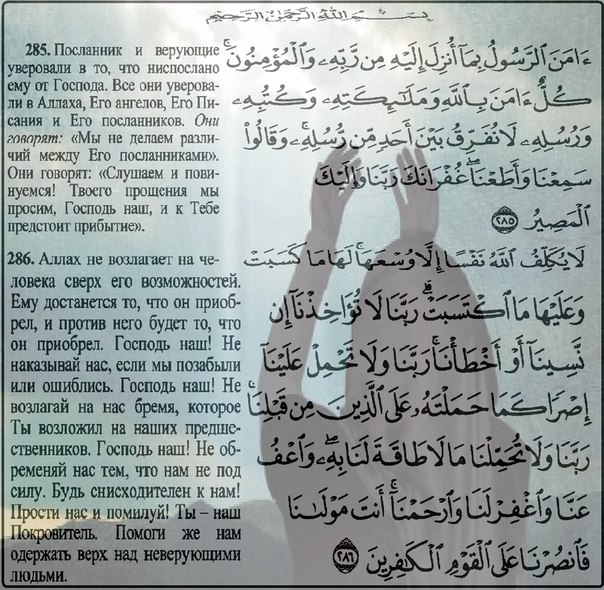 بِسْمِ ٱللَّهِ ٱلرَّحْمَٰنِ ٱلرَّحِيمِ
285. Посланник и верующие
уверовали в то, что ниспослано
ему от Господа. Все они уверова-
ли в Аллаха, Его ангелов, Его Пи-
сания и Его посланников. Они
говорят: «Мы не делаем разли-
чий между Его посланниками».
Они говорят: «Слушаем и пови-
нуемся! Твоего прощения мы
просим, Господь наш, и к Тебе
предстоит прибытие».
286. Аллах не возлагает на че-
ловека сверх его возможностей.
Ему достанется то, что он приоб-
рел, и против него будет то, что
он приобрел. Господь наш! Не
наказывай нас, если мы позабыли
или ошиблись. Господь наш! Не
возлагай на нас бремя, которое
Ты возложил на наших предше-
ственников. Господь наш! Не об-
ременяй нас тем, что нам не под
силу. Будь снисходителен к нам!
Прости нас и помилуй! Ты – наш
Покровитель. Помоги же нам
одержать верх над неверующими
людьми.
ءَامَنَ ٱلرَّسُولُ بِمَآ أُنزِلَ إِلَيْهِ مِن رَّبِّهِۦ وَٱلْمُؤْمِنُونَۚ
كُلٌّ ءَامَنَ بِٱللَّهِ وَمَلَٰٓئِكَتِهِۦ وَكُتُبِهِۦ
وَرُسُلِهِۦ لَا نُفَرِّقُ بَيْنَ أَحَدٍ مِّن رُّسُلِهِۦۚ وَقَالُوا۟
سَمِعْنَا وَأَطَعْنَاۖ غُفْرَانَكَ رَبَّنَا وَإِلَيْكَ
ٱلْمَصِيرُ ٢٨٥
لَا يُكَلِّفُ ٱللَّهُ نَفْسًا إِلَّا وُسْعَهَاۚ لَهَا مَا كَسَبَتْ
وَعَلَيْهَا مَا ٱكْتَسَبَتْۗ رَبَّنَا لَا تُؤَاخِذْنَآ إِن
نَّسِينَآ أَوْ أَخْطَأْنَاۚ رَبَّنَا وَلَا تَحْمِلْ عَلَيْنَآ
إِصْرًا كَمَا حَمَلْتَهُۥ عَلَى ٱلَّذِينَ مِن قَبْلِنَاۚ
رَبَّنَا وَلَا تُحَمِّلْنَا مَا لَا طَاقَةَ لَنَا بِهِۦۖ وَٱعْفُ
عَنَّا وَٱغْفِرْ لَنَا وَٱرْحَمْنَآۚ أَنتَ مَوْلَىٰنَا
فَٱنصُرْنَا عَلَى ٱلْقَوْمِ ٱلْكَٰفِرِينَ ٢٨٦